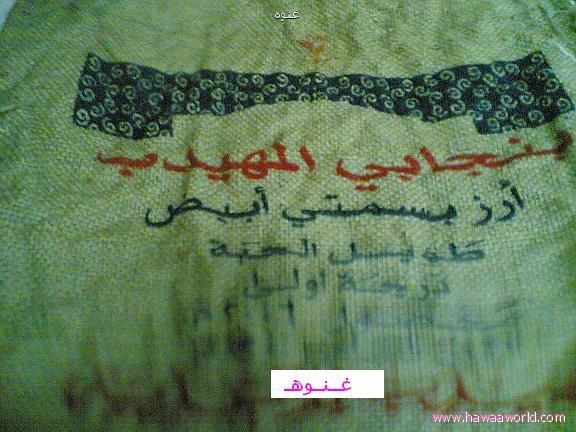 غنوه
بنجابي المهيدب
أرز بسمتي أبيض
طويل الحبة
درجة أولى
غـنـوهـ
www.hawaaworld.com